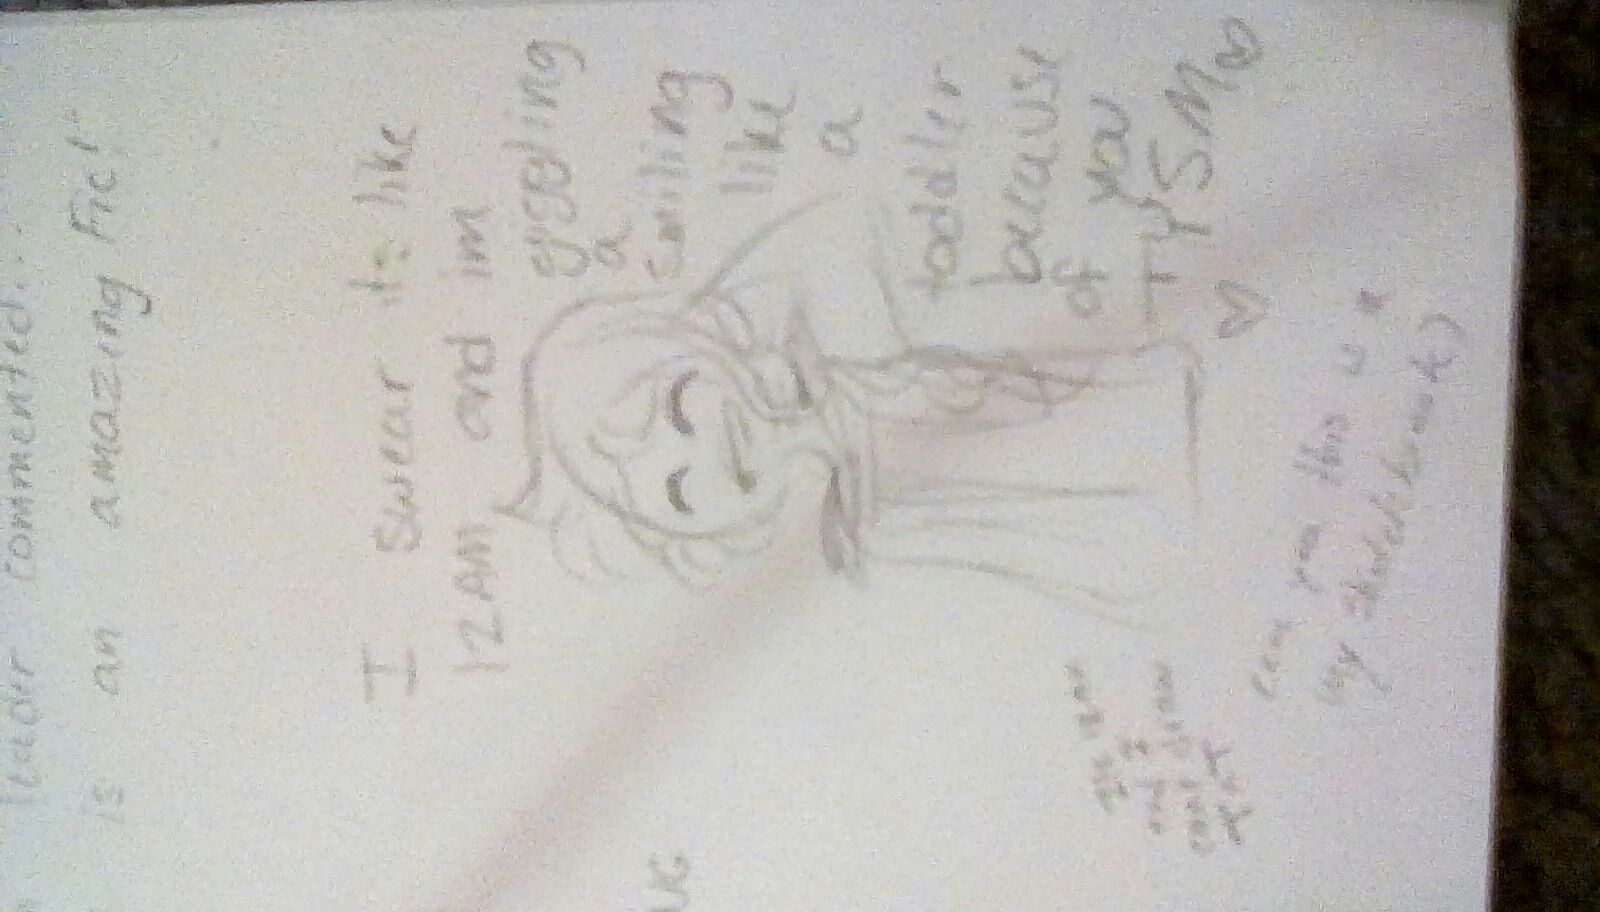 commented..
is an amazing Fic!"
I swear its like
12AM and im
giggling
a
smiling
like
a
toddler
because
of you
TYSM
and I
cant draw
this is
my